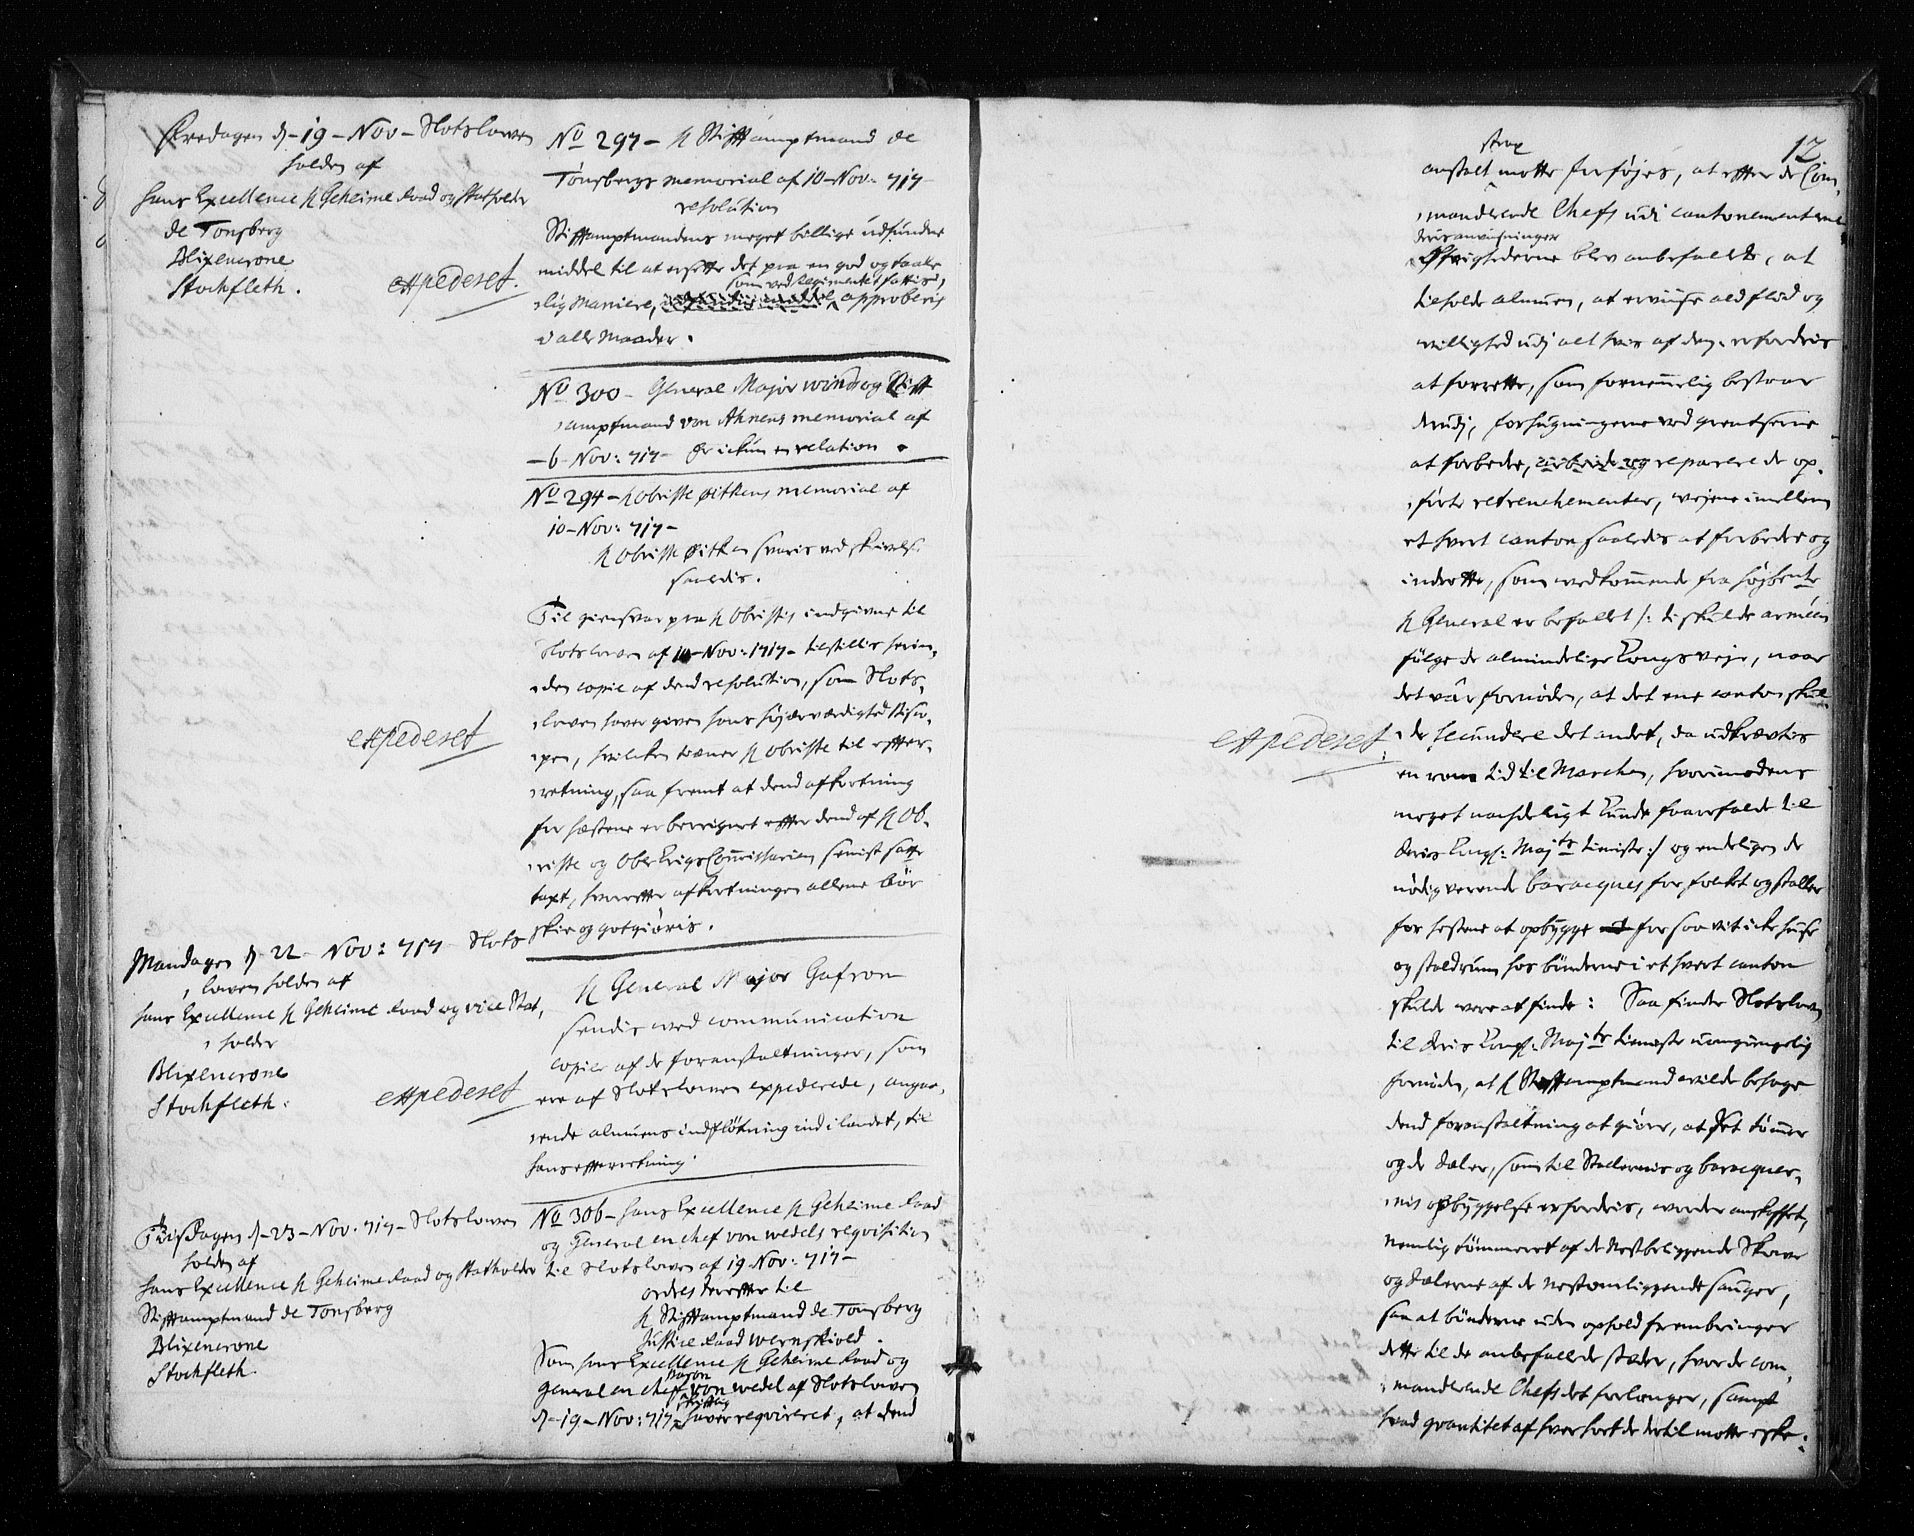 Fredagen d. 19 - Nov - Slotsloven
holden af
hans Excellence H Geheime Raad og Statholder
de Tonsberg
Blixencrone
Stochfleth.
expederet.
No 297 - H Stifftamptmand de
Tonsbergs memorial af 10 - Nov: 717
resolution
Stifftamptmandens meget billige udfundne
middel til at ersette det paa en god og taale
som ved Regimentet fattis,
lig Maniere, approberis
i alle Maader.
No 300 - General Major Wind og Stifft
amptmand von Ahnens memorial af
6 - Nov: 717 - Er ickun en relation.
No 294 - H Obriste Øitkens memorial af
10 - Nov: 717 -
H Obriste Øitken svaris ved skrivelse
saaledis.
Til giensvar paa H Obristis indgivne til
Slotsloven af 10 - Nov: 1717 - tilstillis herin,
den copie af dend resolution, som Slots,
loven haver given hans Højærværdighed Bisp,
pen, hvilcken tiæner H Obriste til effter,
retning, saa fremt at dend afkortning
for hæstene er beregnet effter dend af H Ob,
riste og Ober Krigs Commissarien senist satte
taxt, hvoreffter afkortningen allene bør
skie og gotgiøris.
expederet
Mandagen d. 22 - Nov: 717 - Slots
loven holden af
hans Excellence H Geheime Raad og vice Stat,
holder
Blixencrone
Stochfleth.
expederet
H General Major Gafron
sendis med communication
copier af de foranstaltninger, som
ere af Slotsloven expederede, angaa,
ende almuens indfløtning ind i landet, til
hans effterretning.
Tiisdagen d. 23 - Nov. 717 - Slotsloven
holden af
hans Excellence H Geheime Raad og Statholder
Stifftamptmand de Tonsberg
Blixencrone
Stochfleth.
No 306 - hans Excellence H Geheime Raad
og General en chef von Wedels reqvisition
til Slotsloven af 19 Nov: 717 -
ordres dereffter til
H Stifftamptmand de Tonsberg
Justice Raad Wernskiold.
Som hans Excellence H Geheime Raad og
Baron
General en chef von Wedel af Slotsloven
skrifftlig
d. 19 - Nov: 717 haver reqvireret, at dend
12
strax
anstalt motte forføjes, at effter de Com,
manderende Chefs udi cantonementerne
deris anvisninger
Øfrighederne blev anbefallede, at
tilholde almuen, at erviise ald flid og
villighed udj alt hvis af dem erfordris
at forrette, som fornemmelig bestaar
derudj, forhugningerne ved grentserne
at forbedre, reparere de op,
førte retrenchementer, vejene imellem
et hvert canton saaledis at forbedre og
indrette, som vedkommende fra højbemte
H General er befallet /: ti skulde arméen
følge de almindelige Kongs veje, naar
det var fornøden, at det ene canton skul,
de secundere det andet, da udkrævtis
en rom tid til Marchen, hvorimodens
noget nachdeeligt kunde foarefalde til
deris Kongl: Majts tieniste :/ og endeligen de
nødigverende baracques for folket og stalle
for hestene at opbygge for saa vit icke huse
og staldrum hos bønderne i et hvert canton
skulde være at finde: Saa finder Slotsloven
til deris Kongl: Majts tieneste uomgiengelig
fornøden, at H Stifftamptmand wilde behage
dend foranstaltning at giøre, at det tømmer
og de dæler, som til Stallernis og baracquer,
nis opbyggelse erfordris, worder anskaffet,
nemlig tømmeret af de nestbeliggende Skove
og dælerne af de nestomliggende sauger,
saa at bønderne uden ophold frembringer
dette til de anbefallede stæder, hvor de com,
manderende Chefs det forlanger, sampt
hvad qvantitet af hver sort de dertil motte eske,
expederet